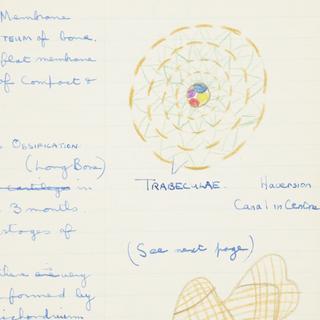 Membrane
TEUM of bone.
flat membrane
of Compact &
OSSIFICATION.
(Long Bone)
cartilage in
3 months.
stages of
there are very
formed by
TRABECULAE.
Haversian
Canal in Centre
(See next page)